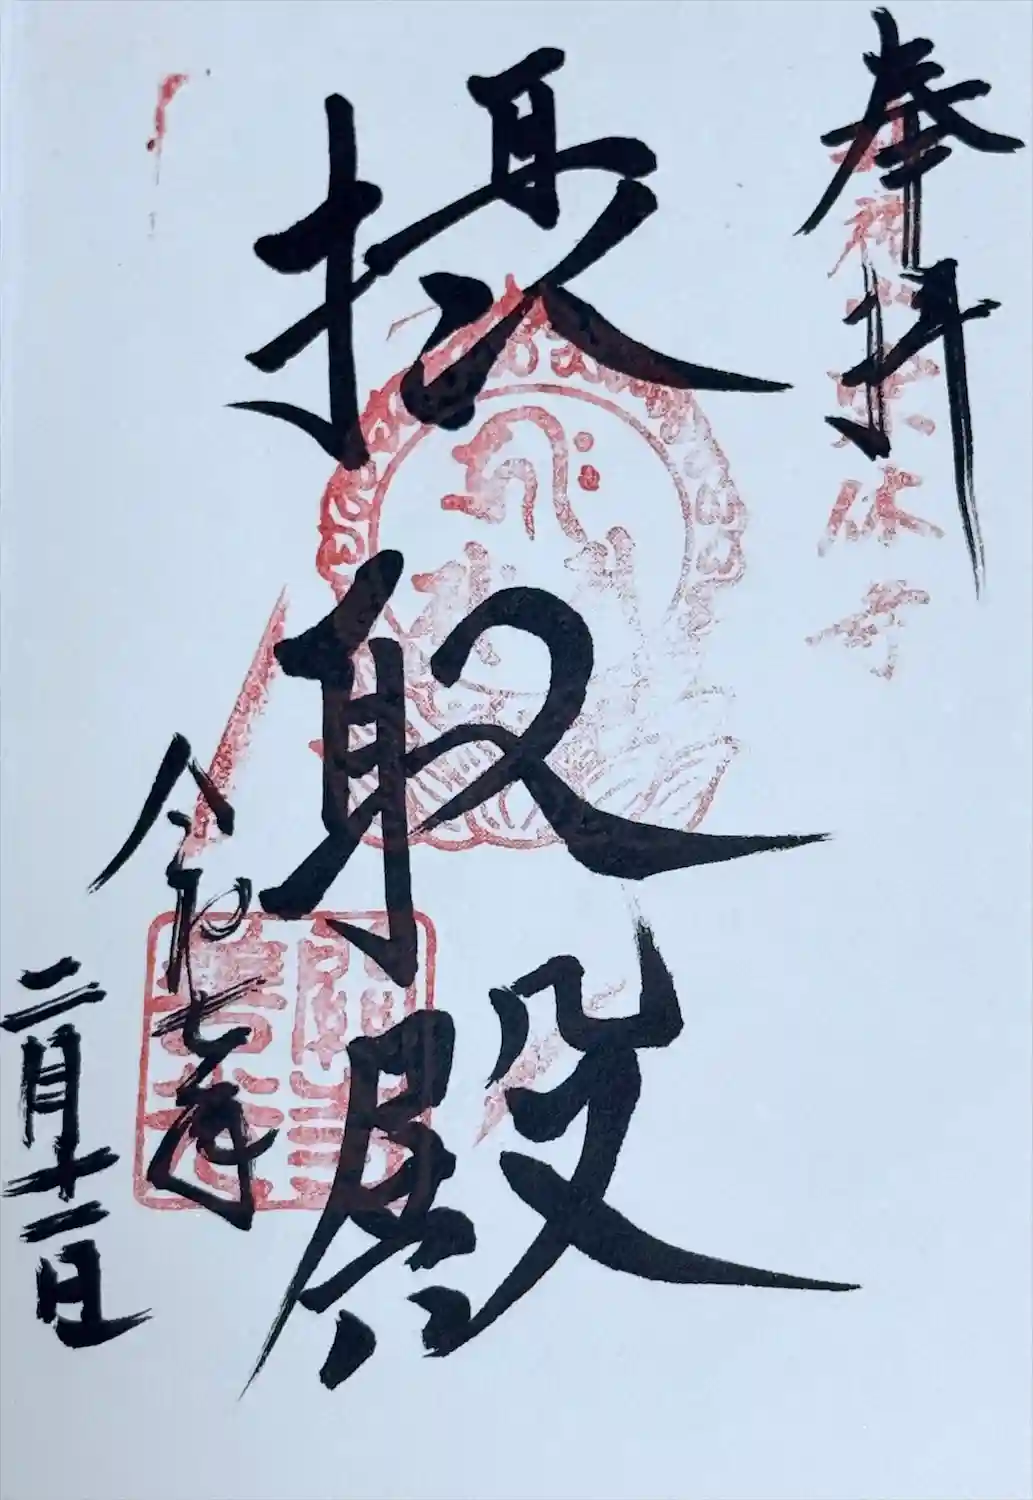 奉拝
摂取殿
令和七年
二月十一日